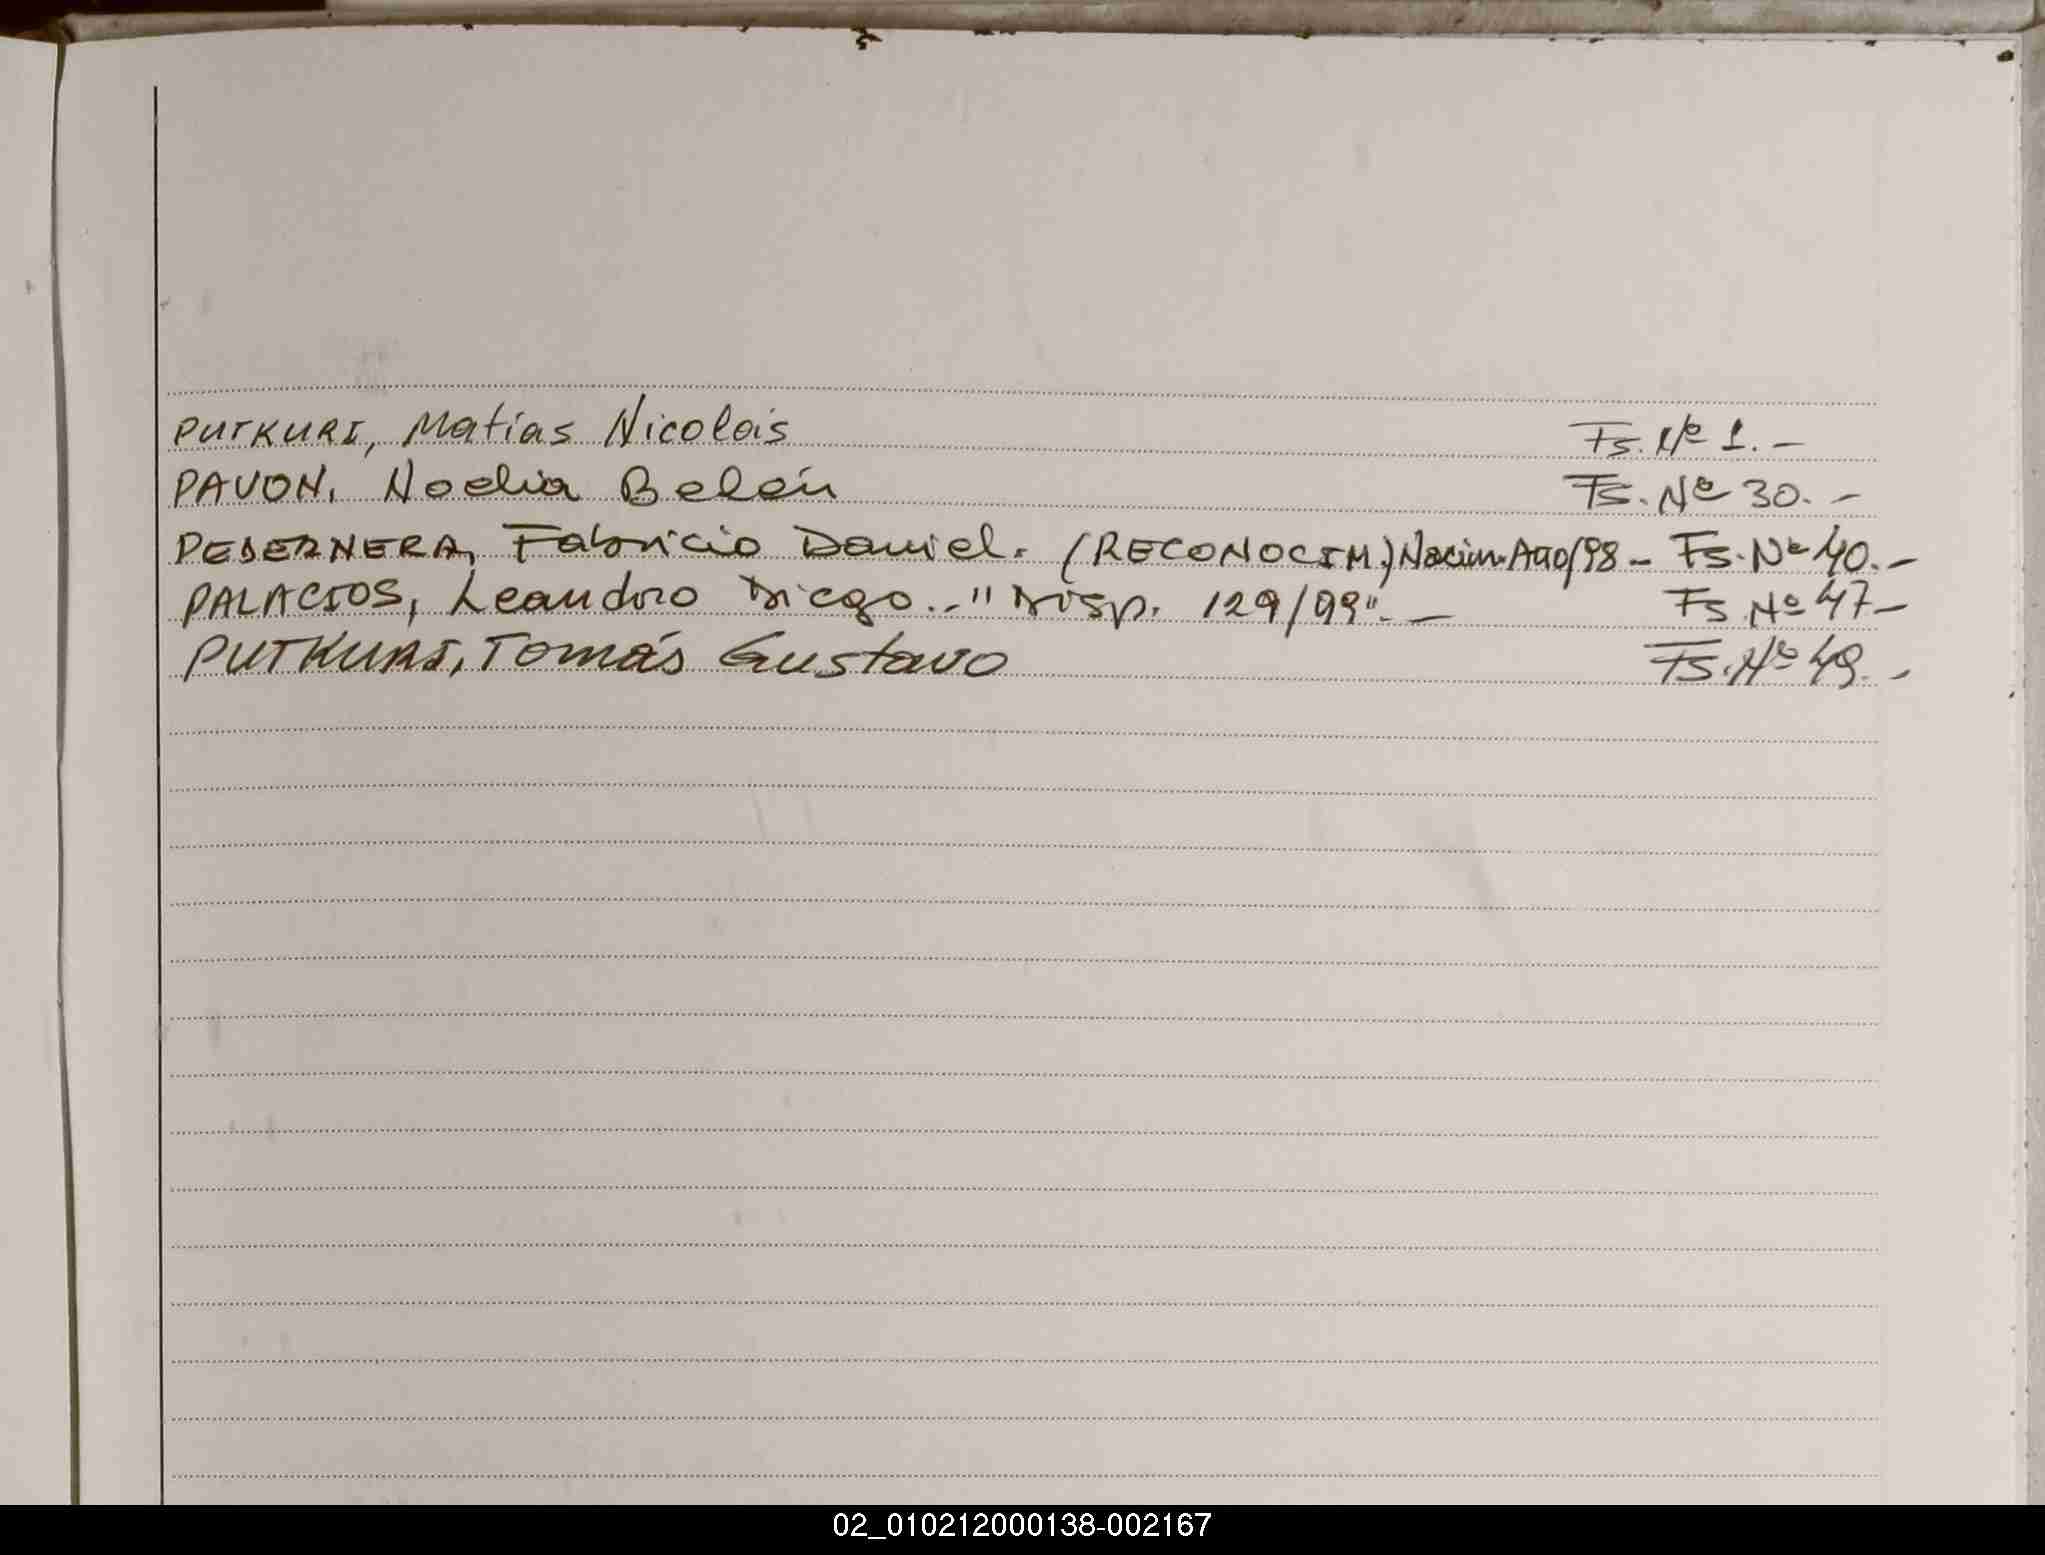 PUTKURI, Matías Nicolás Fs. Nº 1.-
PAVON, Noelia Belén Fs. Nº 30.-
PEDERNERA, Fabricio Daniel. (RECONOCIM.) Nacim. Año/98 - Fs. Nº 40.-
PALACIOS, Leandro Diego.- "Disp. 129/99".- Fs. Nº 47-
PUTKURI, Tomás Gustavo Fs. Nº 49.-
02_010212000138-002167